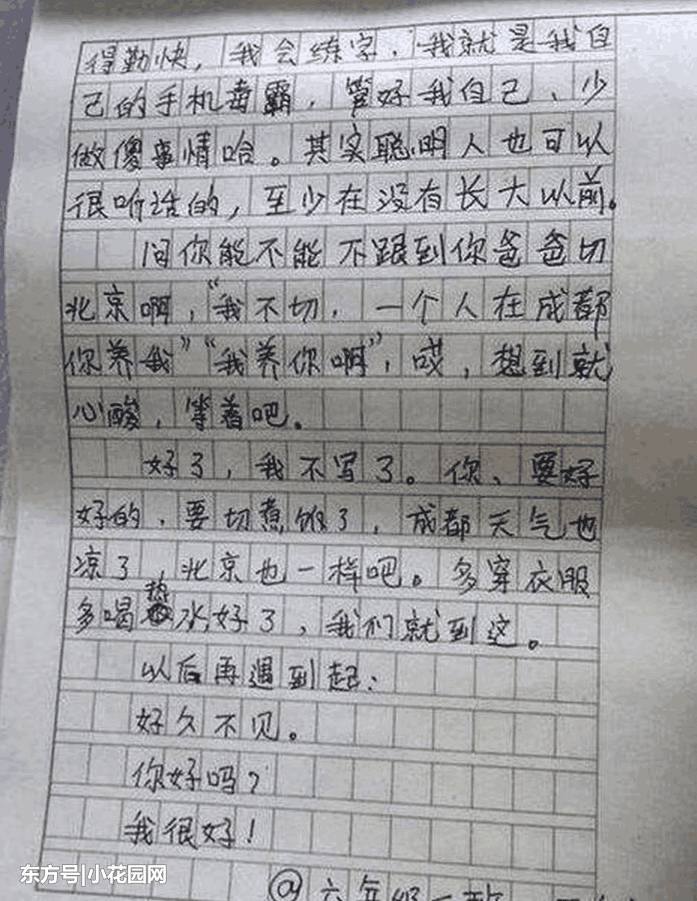 得勤快，我会练字，我就是我自
己的手机毒霸，管好我自己、少
做傻事情哈。其实聪明人也可以
很听话的，至少在没有长大以前。
问你能不能不跟到你爸爸切
北京啊，“我不切，一个人在成都
你养我”“我养你啊”，哎，想到就
心酸，等着吧。
好了，我不写了。你、要好
好的，要切煮饭了，成都天气也
凉了，北京也一样吧。多穿衣服
多喝热水，好了，我们就到这。
以后再遇到起：
好久不见。
你好吗？
我很好！
@六年级一
东方号|小花园网